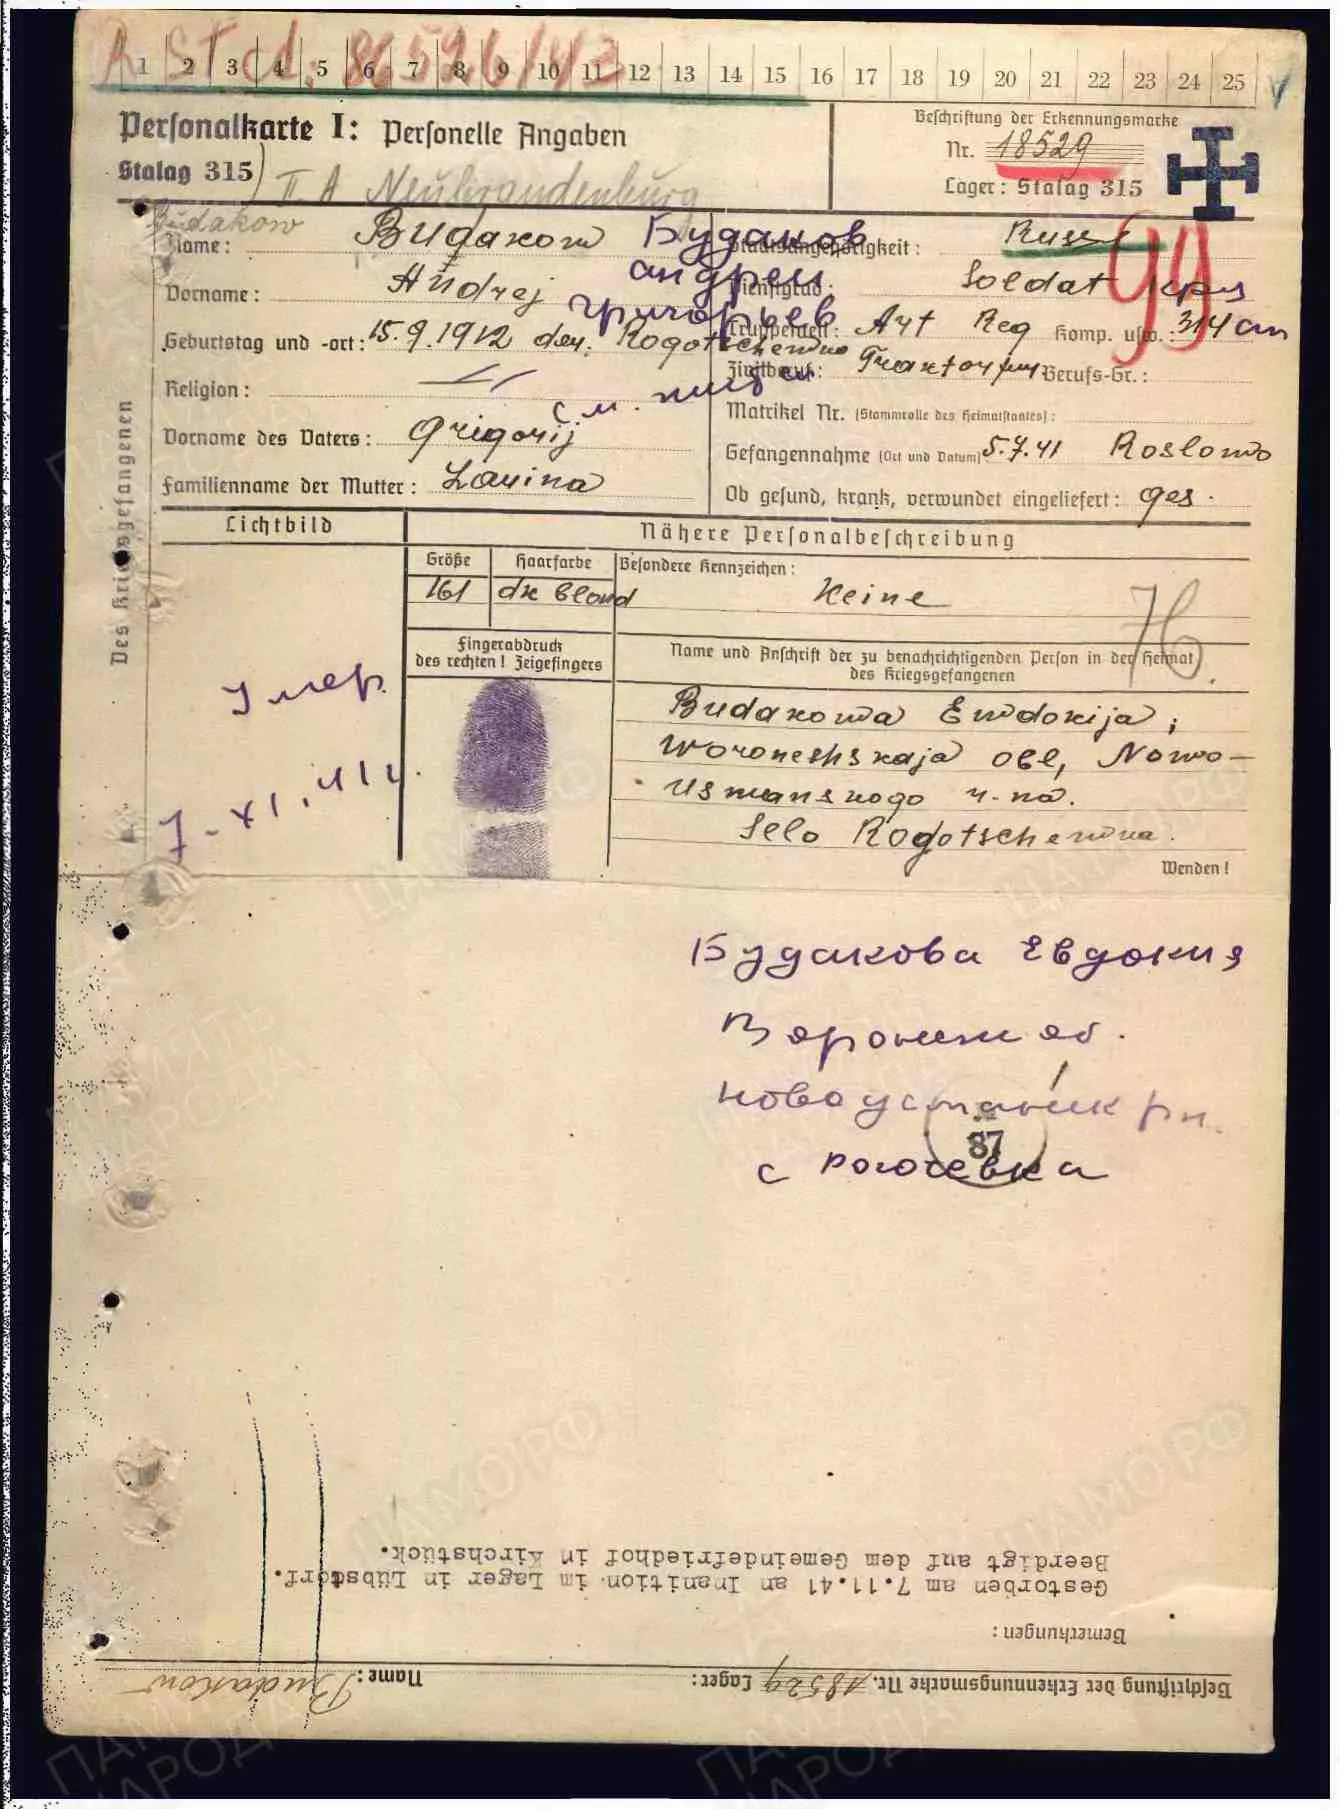 A St d. 86596/43
1 2 3 4 5 6 7 8 9 10 11 12 13 14 15 16 17 18 19 20 21 22 23 24 25
Personalkarte I: Personelle Angaben
Stalag 315) II. A Neubrandenburg
Beschriftung der Erkennungsmarke
Nr. 18529
Lager: Stalag 315
Budakow
Name: Budakow Будаков
Staatsangehörigkeit: Russe
99
Vorname: Andrej андреи
Dienstgrad: Soldat
григорьев
Truppenteil: Art Reg Komp. usw.: 314
Geburtstag und -ort: 15.9.1912 den. Rogotschewka
Zivilberuf: Berufs-Gr.:
Religion:
Matrikel Nr. (Stammrolle des Heimatstaates):
Vorname des Vaters: Grigorij
Gefangennahme (Ort und Datum) 5.7.41 Roslowo
Familienname der Mutter:
Ob gesund, krank, verwundet eingeliefert: ges.
Des Kriegsgefangenen
Lichtbild
Nähere Personalbeschreibung
Größe Haarfarbe Besondere Kennzeichen:
161 dk blond Keine
76
Fingerabdruck
des rechten! Zeigefingers
Name und Anschrift der zu benachrichtigenden Person in der Heimat
des Kriegsgefangenen
Умер
7-XI.41г.
Budakowa Ewdokija,
Woroneshskaja obl, Nowo-
Usmanskogo r-na.
Selo Rogotschewka.
Wenden!
Будакова Евдокия
Воронеж об.
новоусманск рн.
87
с рогочевка
Beschriftung der Erkennungsmarke Nr. 18529 Lager: Name: Budakow
Bemerkungen:
Gestorben am 7.11.41 an Inanition im Lager in Lübstorf.
Beerdigt auf dem Gemeindefriedhof in Kirchstück.